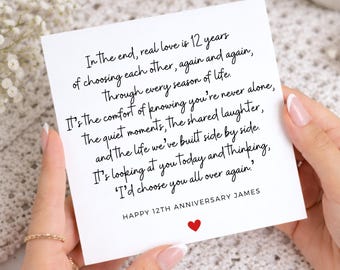 In the end, real love is 12 years
of choosing each other, again and again,
through every season of life.
It's the comfort of knowing you're never alone,
the quiet moments, the shared laughter,
and the life we've built side by side.
It's looking at you today and thinking,
'I'd choose you all over again.'
HAPPY 12TH ANNIVERSARY JAMES